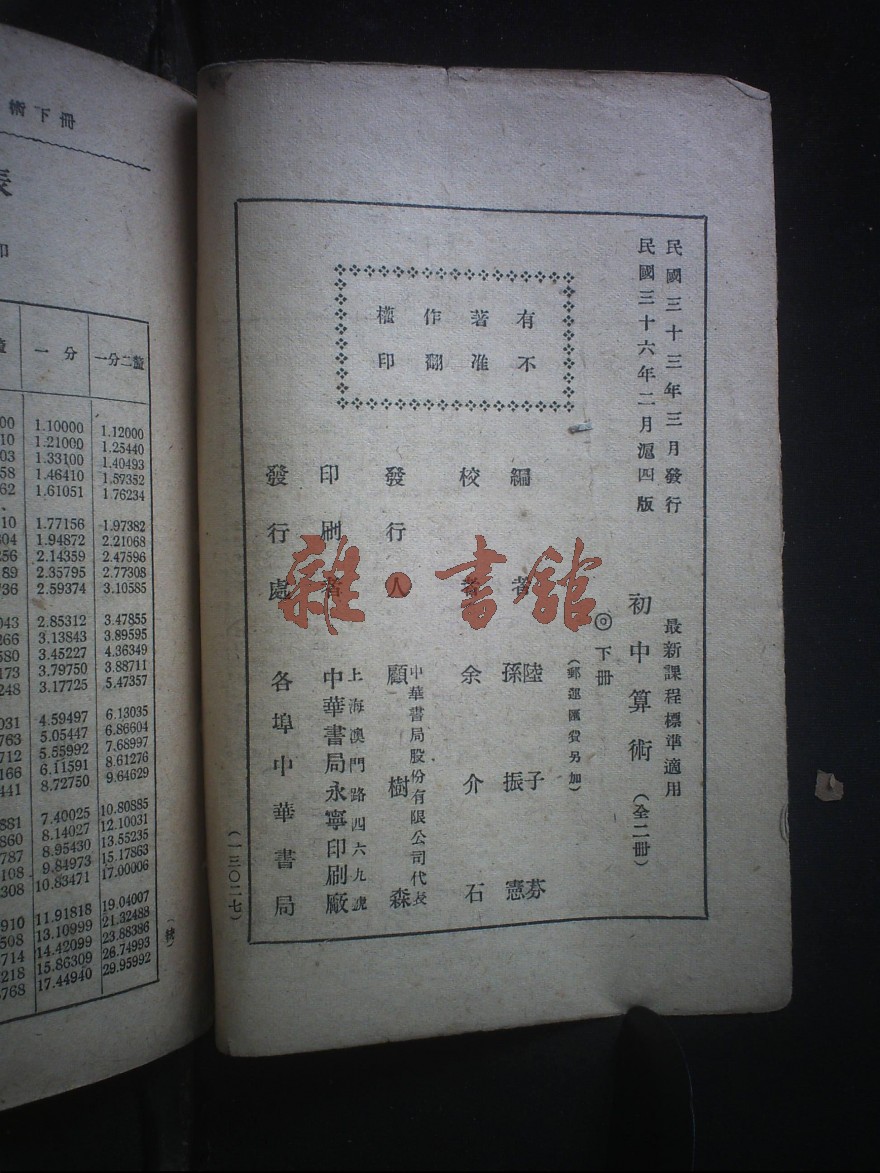 民國三十三年三月發行
民國三十六年二月滬四版
最新課程標準適用
初中算術（全二冊）
◎下冊
（郵運匯費另加）
有著作權
不准翻印
編者 陸子芬
孫振憲
校者 余介石
發行人 中華書局股份有限公司代表
顧樹森
印刷者 上海澳門路四六九號
中華書局永寧印刷廠
發行處 各埠中華書局
（一三〇二七）
雜·書舘
術下冊
表
印
一分 一分二釐
1.10000 1.12000
1.21000 1.25440
1.33100 1.40493
1.46410 1.57352
1.61051 1.76234
1.77156 1.97382
1.94872 2.21068
2.14359 2.47596
2.35795 2.77308
2.59374 3.10585
2.85312 3.47855
3.13843 3.89595
3.45227 4.36349
3.79750 3.88711
3.17725 5.47357
4.59497 6.13035
5.05447 6.86604
5.55992 7.68997
6.11591 8.61276
8.72750 9.64629
7.40025 10.80885
8.14027 12.10031
8.95430 13.55235
9.84973 15.17863
10.83471 17.00006
11.91818 19.04007
13.10999 21.32488
14.42099 23.88386
15.86309 26.74993
17.44940 29.95992